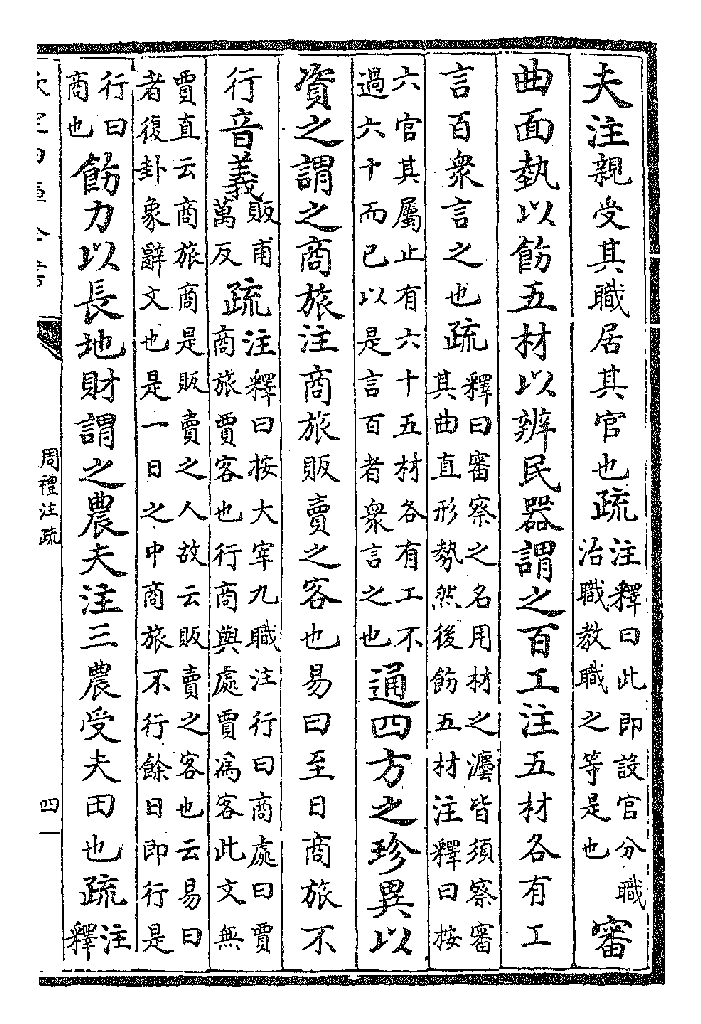 夫注親受其職居其官也疏注釋曰此即設官分職
治職教職之等是也審
曲面埶以飭五材以辨民器謂之百工注五材各有工
言百衆言之也疏釋曰審察之名用材之灋皆須察審
其曲直形勢然後飭五材注釋曰按
六官其屬止有六十五材各有工不
過六十而已以是言百者衆言之也通四方之珍異以
資之謂之商旅注商旅販賣之客也易曰至日商旅不
行音義販甫
萬反疏注釋曰按大宰九職注行曰商處曰賈
商旅賈客也行商與處賈爲客此文無
賈直云商旅商是販賣之人故云販賣之客也云易曰
者復卦象辭文也是一日之中商旅不行餘日即行是
行曰
商也飭力以長地財謂之農夫注三農受夫田也疏注
釋
周禮注疏
四